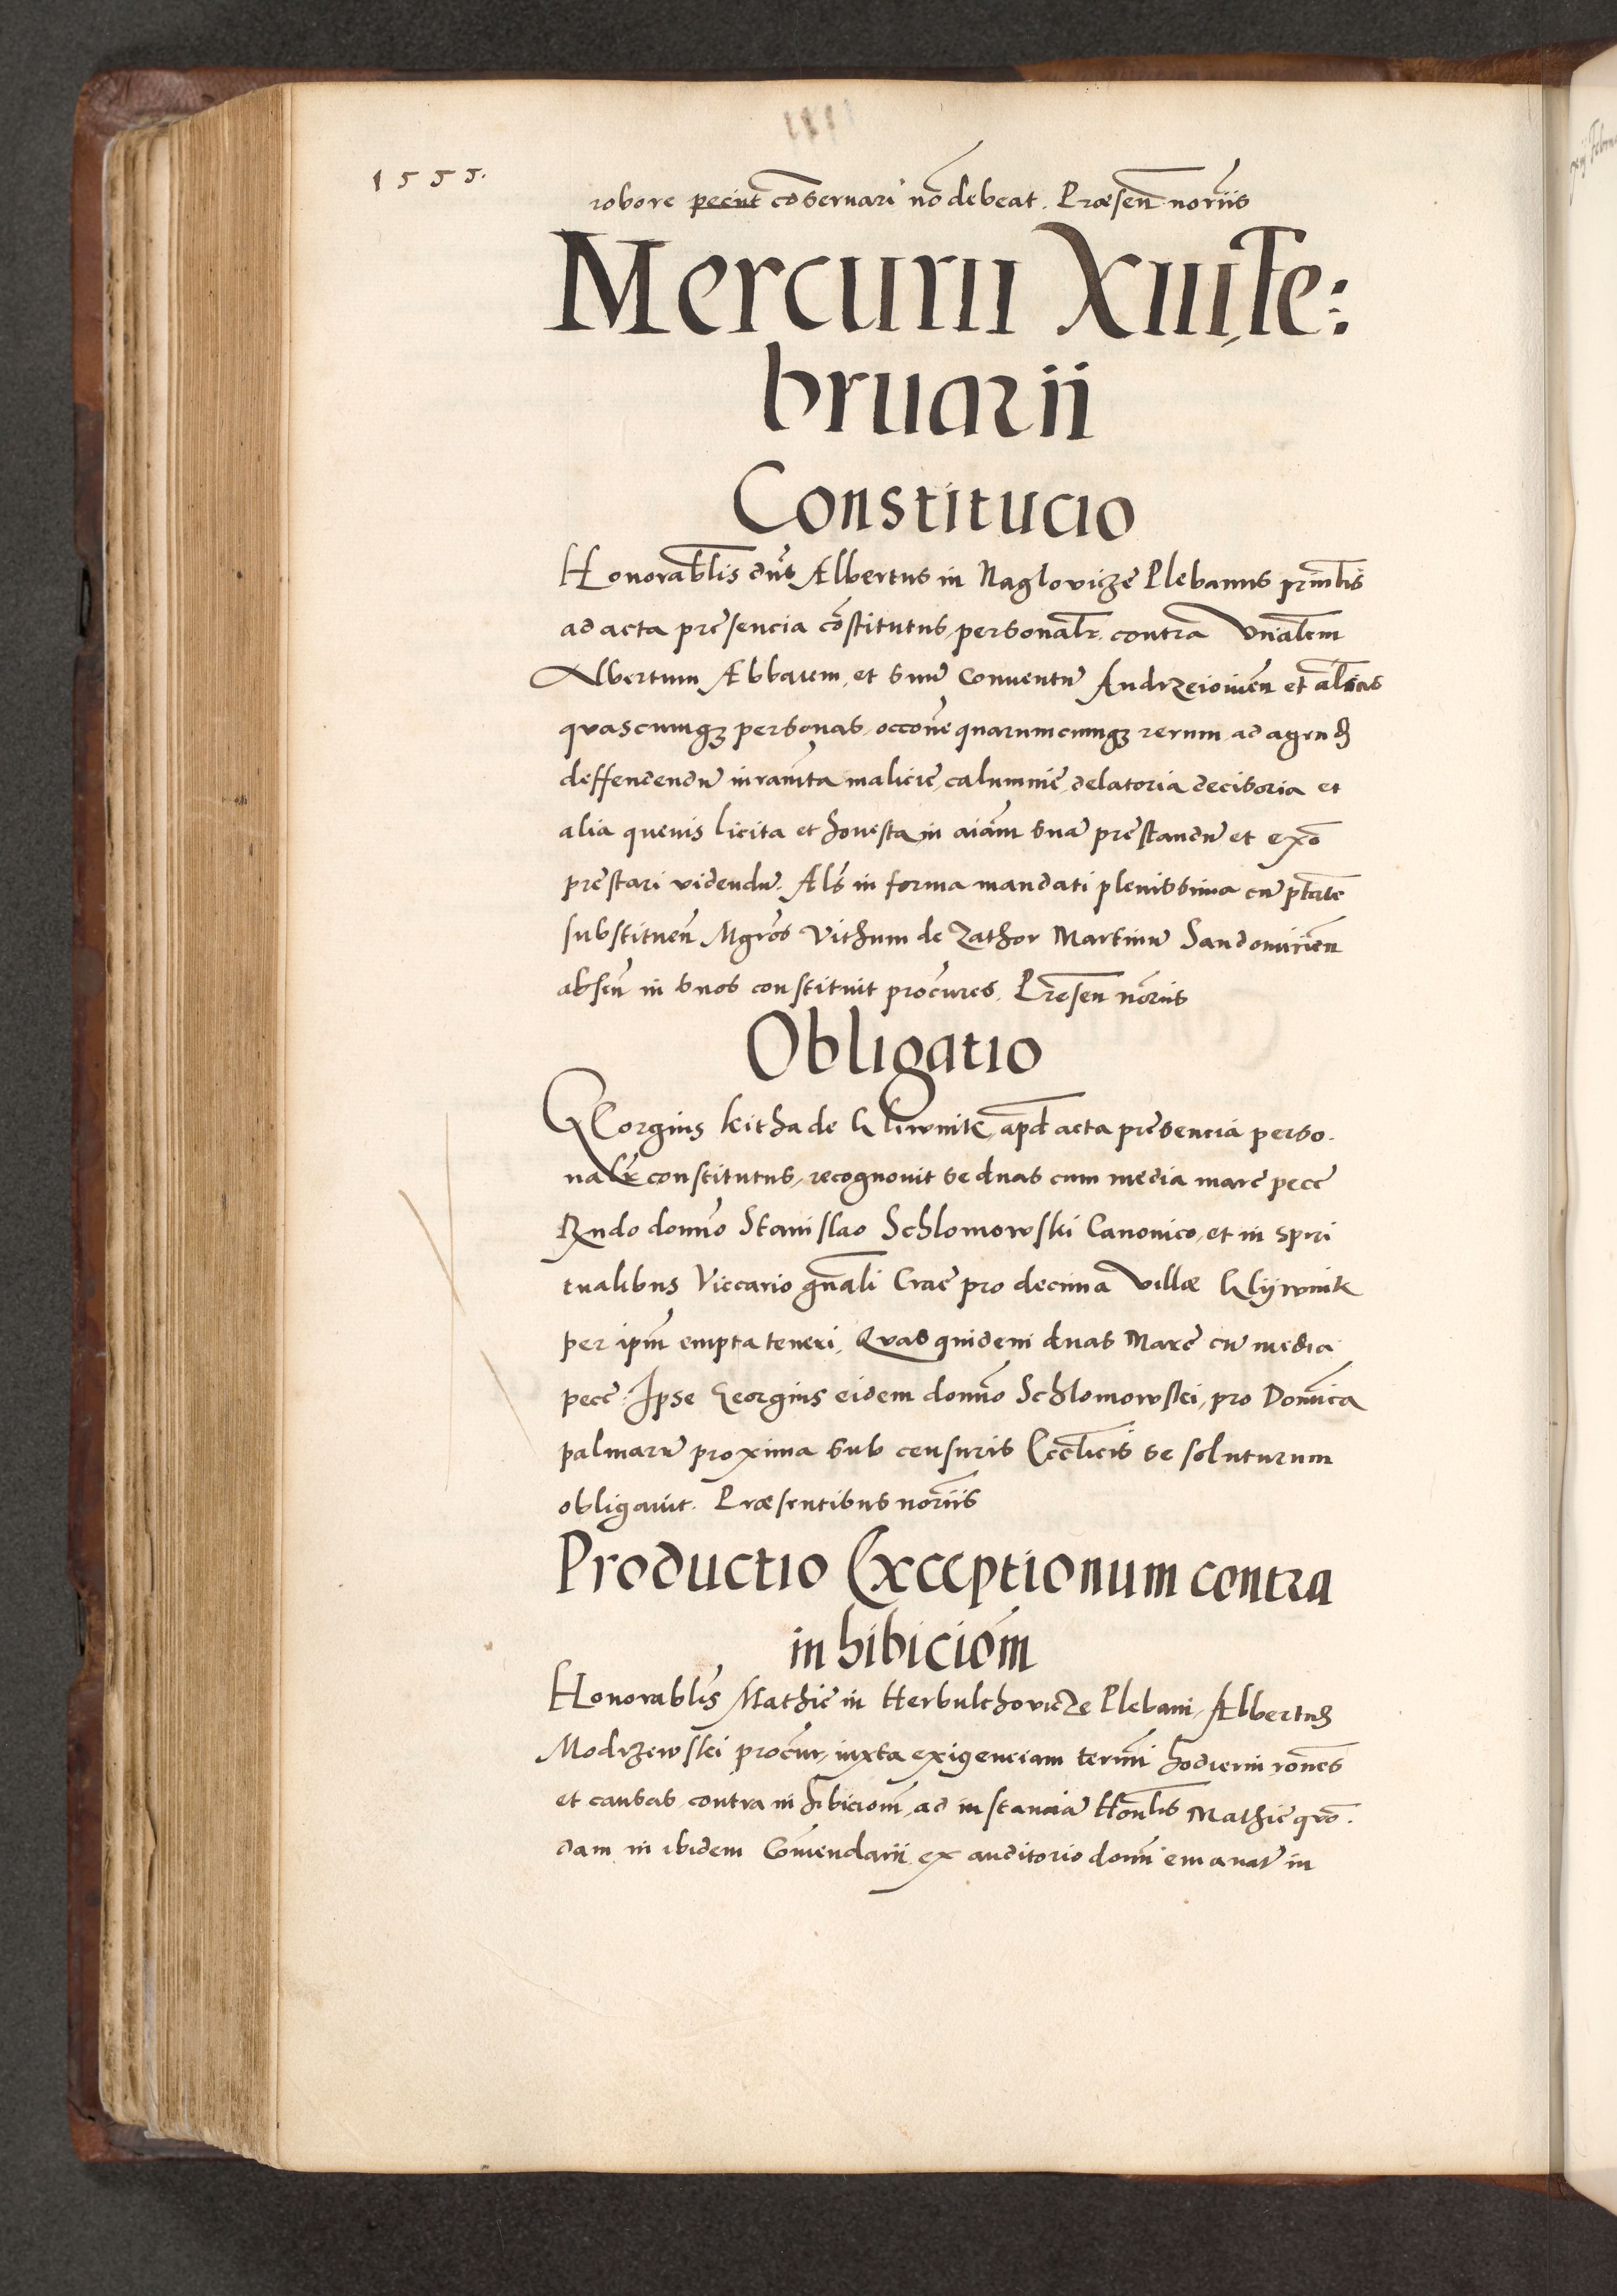 1555.
robore pecut cōservari nō debeat. Præsen̄ noriis
Mercurii Xiii, Fe:
bruarii
Constitucio
Honorablis dns Albertus in Naglovicze Plebanus prncbls
ad acta presencia cōstitutus, personalr. contra Vnablem
Albertum Abbatem, et suū Conventū Andrzeiovien̄ et alias
quascumqz personas, occone quarumcumqz rerum, ad agend
deffendendū iuramta malicie, calumnie, delatoria decisoria et
alia quevis licita et honesta, in aiam suā prestandū et exo
prestari videndū. Als in forma mandati plenissima cū ptate
substituen̄ Mgros Vithum de Zathor Martinū Sandomirien̄
absen̄ in suos constituit procures. Præsen̄ noriis
Obligatio
GEorgius Kitha de Gliwnik, apd acta presencia perso.
nalr constitutus, recognovit se duas cum media marc pecc
Rndo domno Stanislao Schlomowski Canonico, et in spiri
tualibus Viccario gnali Crac pro decima Villæ Glijwnik
per ipm empta teneri. Quas quidem duas Marc cū media
pecc. Ipse Georgius eidem domno Schlomowski, pro Domica
palmarū proxima sub censuris Eccleticis se soluturum
obligavit. Præsentibus noriis
Productio Exceptionum contra
inhibiciom
Honorablis Mathie in Herbulthovicze Plebani, Albertus
Modrzewski procur, iuxta exigenciam termi hodierni rones
et causas contra inhibiciom, ad instanciā Honblis Mathie quo.
dam in ibidem Comendarii ex auditorio domi emanatā in